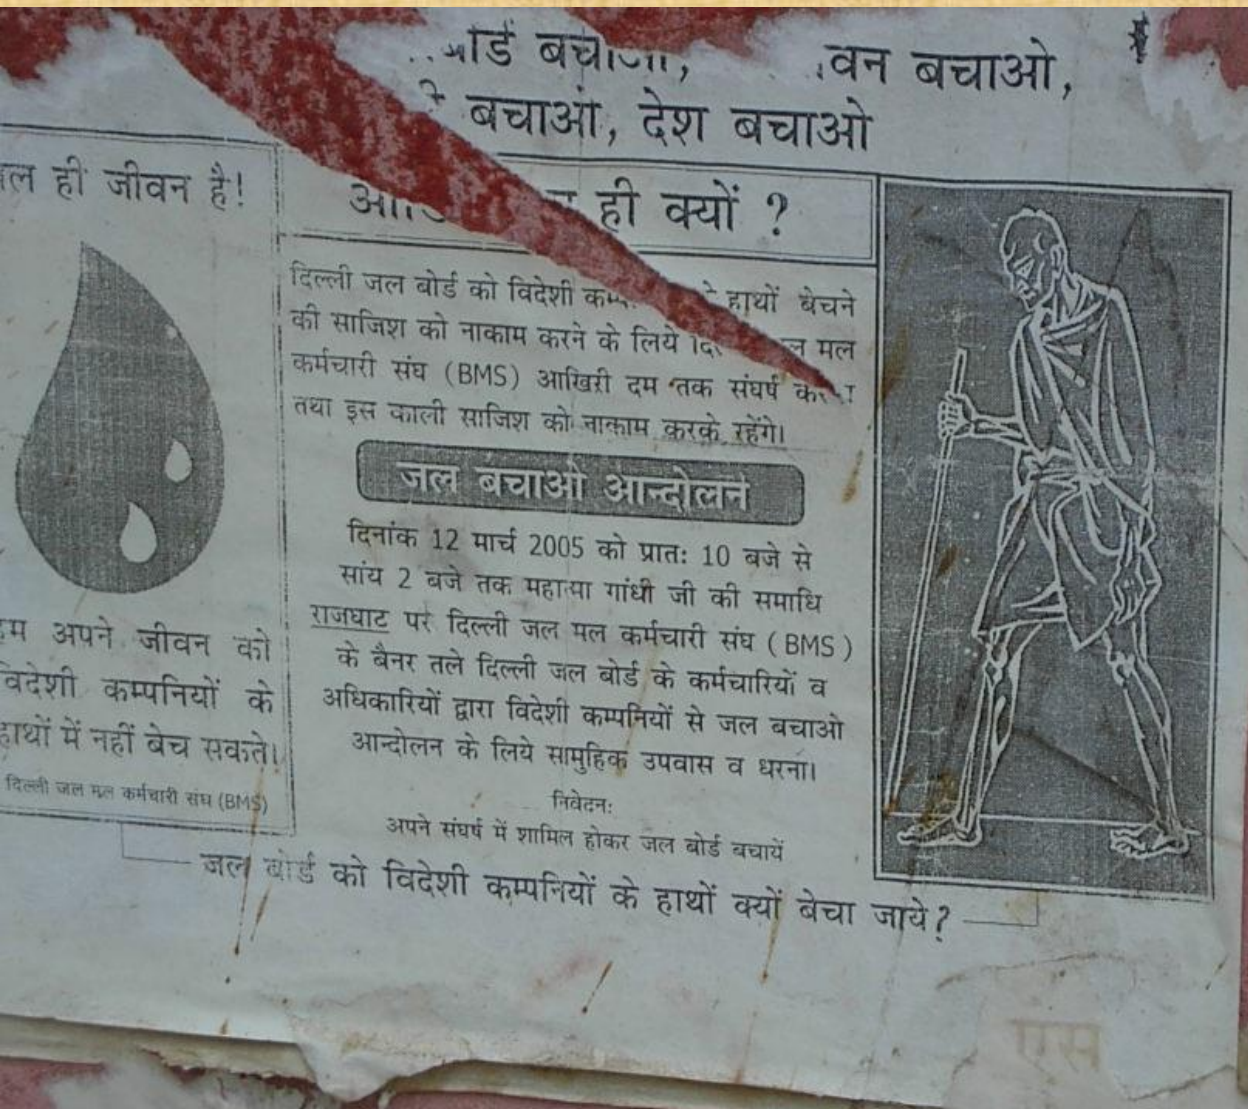 बचाओ, देश बचाओ
वन बचाओ,
जल ही जीवन है!
हम अपने जीवन को
विदेशी कम्पनियों के
हाथों में नहीं बेच सकते।
दिल्ली जल मल कर्मचारी संघ (BMS)
ही क्यों ?
दिल्ली जल बोर्ड को विदेशी हाथों बेचने
की साजिश को नाकाम करने के लिये मल
कर्मचारी संघ (BMS) आखिरी दम तक संघर्ष
तथा इस काली साजिश को नाकाम करके रहेंगे।
जल बचाओ आन्दोलन
दिनांक 12 मार्च 2005 को प्रात: 10 बजे से
सांय 2 बजे तक महात्मा गांधी जी की समाधि
राजघाट पर दिल्ली जल मल कर्मचारी संघ (BMS)
के बैनर तले दिल्ली जल बोर्ड के कर्मचारियों व
अधिकारियों द्वारा विदेशी कम्पनियों से जल बचाओ
आन्दोलन के लिये सामुहिक उपवास व धरना।
निवेदन:
अपने संघर्ष में शामिल होकर जल बोर्ड बचायें
जल बोर्ड को विदेशी कम्पनियों के हाथों क्यों बेचा जाये?
एस